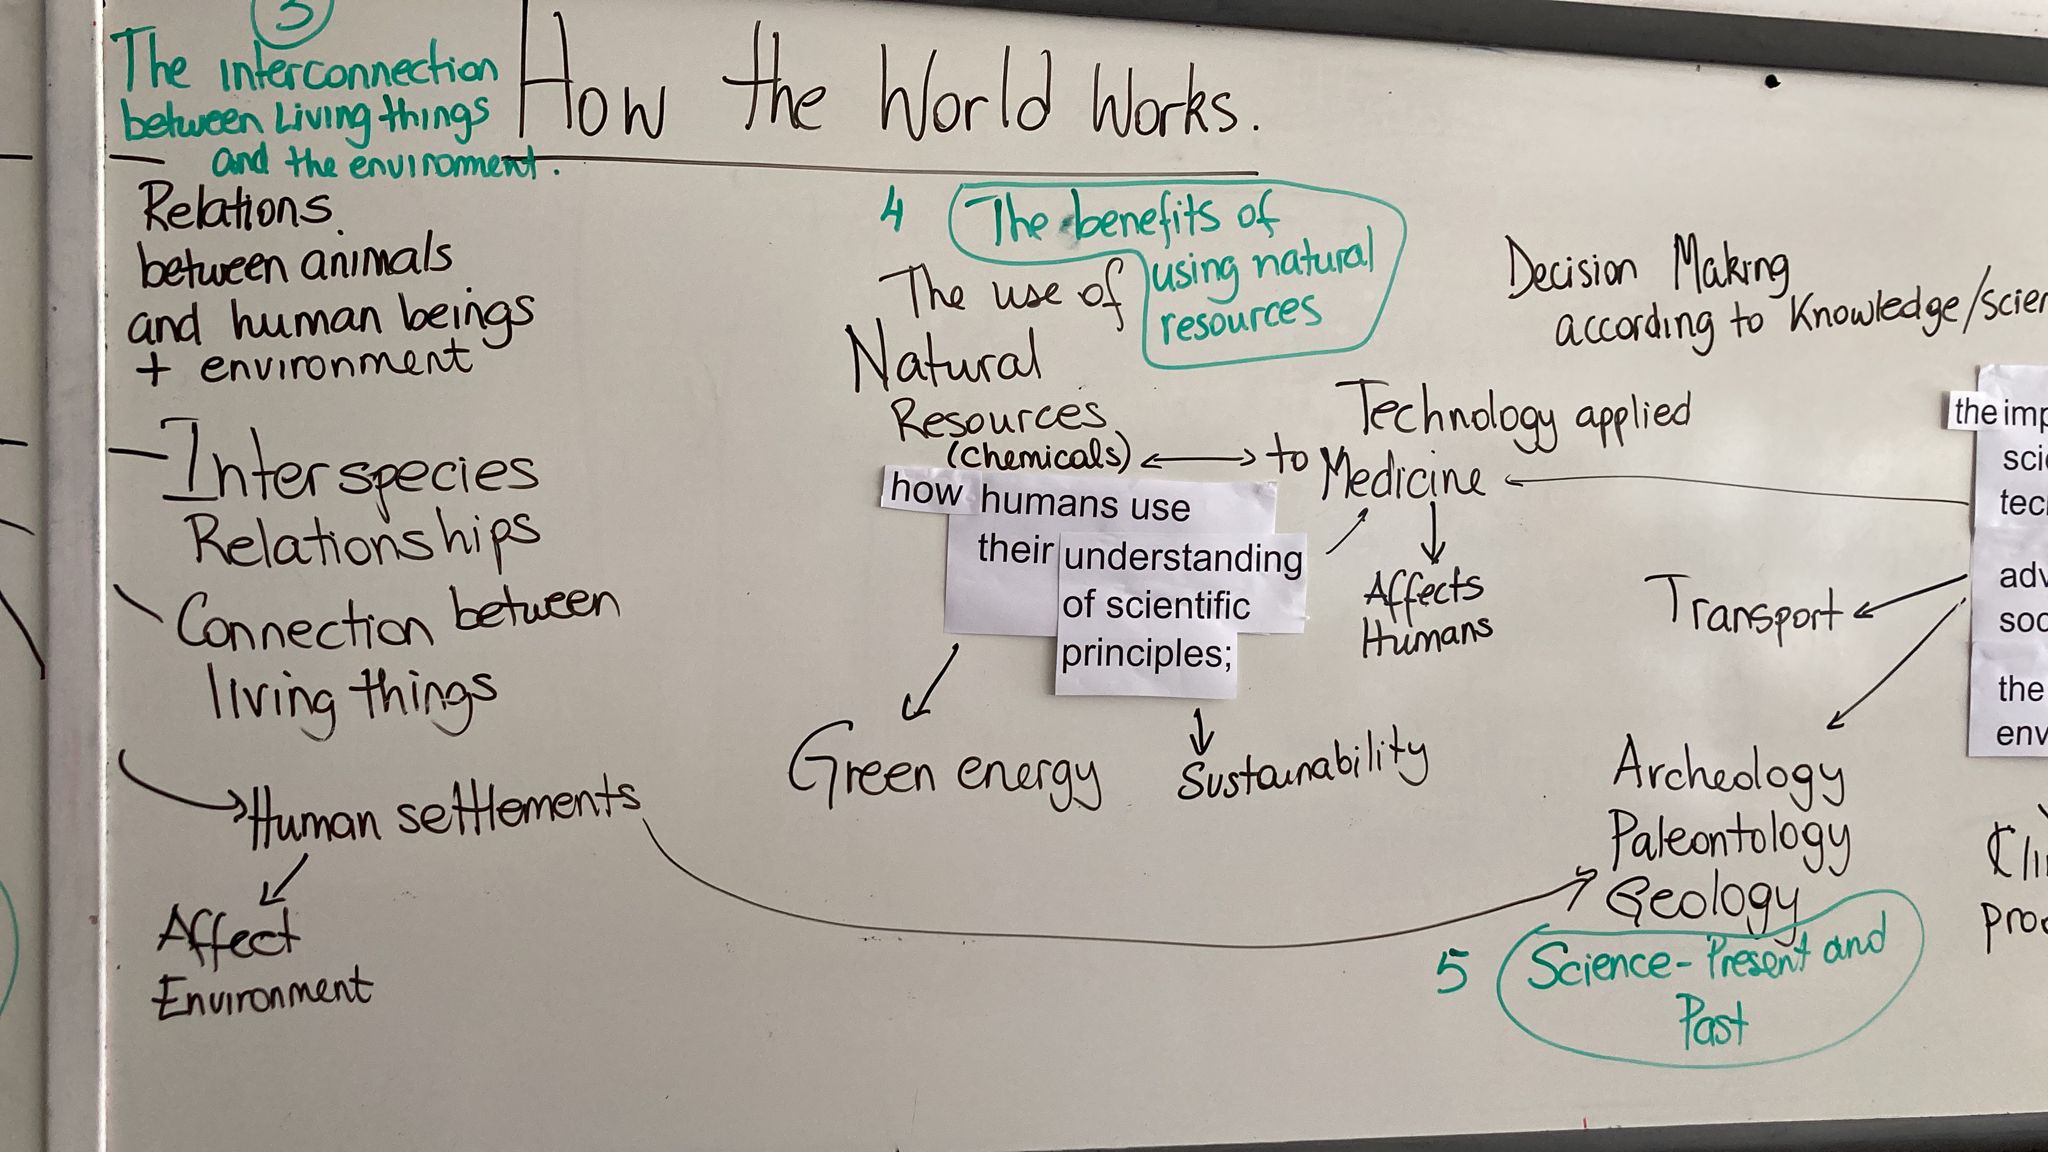 3
The interconnection
between Living things
and the environment.
How the World Works.
Relations
between animals
and human beings
+ environment
Interspecies
Relationships
Connection between
living things
Human settlements
Affect
Environment
4
The benefits of
using natural
resources
The use of
Natural
Resources
(chemicals)
how humans use
their understanding
of scientific
principles;
Green energy
Sustainability
Decision Making
according to Knowledge/Scien
Technology applied
to Medicine
Affects
Humans
Transport
Archeology
Paleontology
Geology
5
Science - Present and
Past
the imp
sci
tec
adv
soc
the
env
Cli
proc